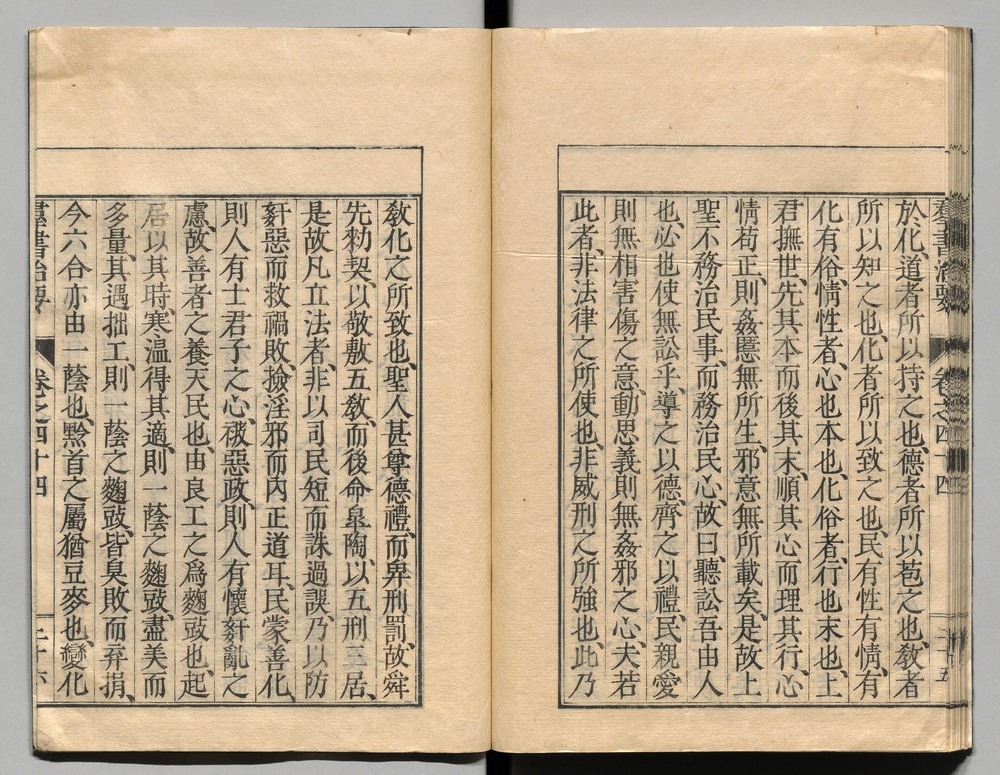 羣書治要 卷之四十四 二十五
於化、道者所以持之也、德者所以苞之也、敎者
所以知之也、化者所以致之也、民有性有情、有
化有俗、情性者、心也本也、化俗者、行也末也、上
君撫世、先其本而後其末、順其心而理其行、心
情苟正、則姦慝無所生、邪意無所載矣、是故上
聖不務治民事、而務治民心、故曰、聽訟吾由人
也、必也使無訟乎、導之以德、齊之以禮、民親愛
則無相害傷之意、動思義則無姦邪之心、夫若
此者、非法律之所使也、非威刑之所強也、此乃
敎化之所致也、聖人甚尊德禮、而卑刑罰、故舜
先勑契、以敬敷五敎、而後命皐陶、以五刑三居、
是故凡立法者、非以司民短而誅過誤、乃以防
姧惡而救禍敗、撿淫邪而內正道耳、民蒙善化、
則人有士君子之心、被惡政、則人有懷姧亂之
慮、故善者之養天民也、由良工之爲麴豉也、起
居以其時、寒溫得其適、則一蔭之麴豉、盡美而
多量、其遇拙工、則一蔭之麴豉、皆臭敗而弃捐、
今六合亦由一蔭也、黔首之屬猶豆麥也、變化
羣書治要 卷之四十四 二十六